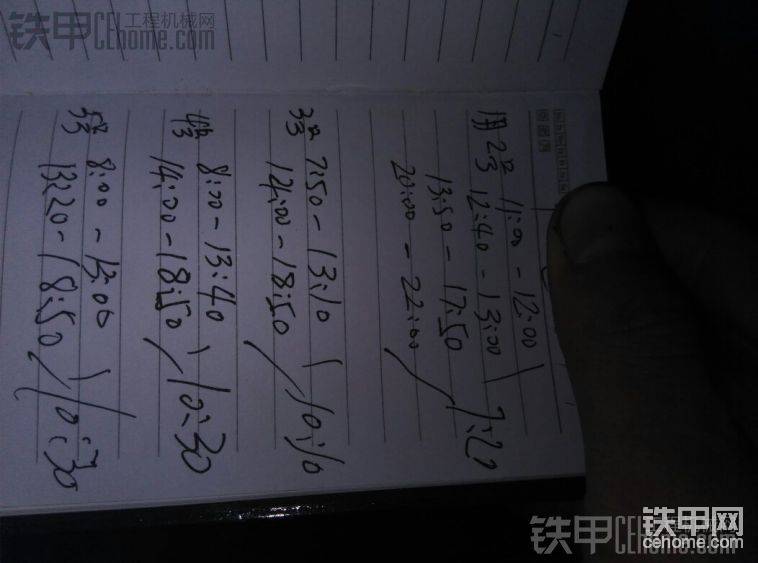 铁甲 工程机械网
CEhome.com
1月2号 11:00 - 12:00
12:40 - 13:00
13:50 - 17:50
20:00 - 22:00
7:20
3号 7:50 - 13:10
14:00 - 18:50
10:10
4号 8:00 - 13:40
14:00 - 18:50
10:30
5号 8:00 - 13:00
13:20 - 18:50
10:30
铁甲网
cehome.com
铁甲
CEhome.com